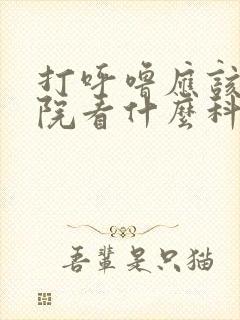 打呼嚕應該
院看什麼科
吾輩是只猫